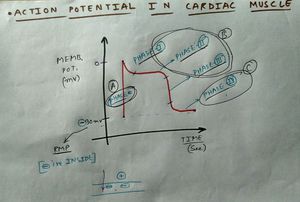 • ACTION POTENTIAL IN CARDIAC MUSCLE
MEMB.
POT.
(mV)
0
A
PHASE 0
PHASE I
PHASE II
B
PHASE III
C
PHASE IV
-90mV
TIME
(Sec)
RMP
[⊖ in INSIDE]
+